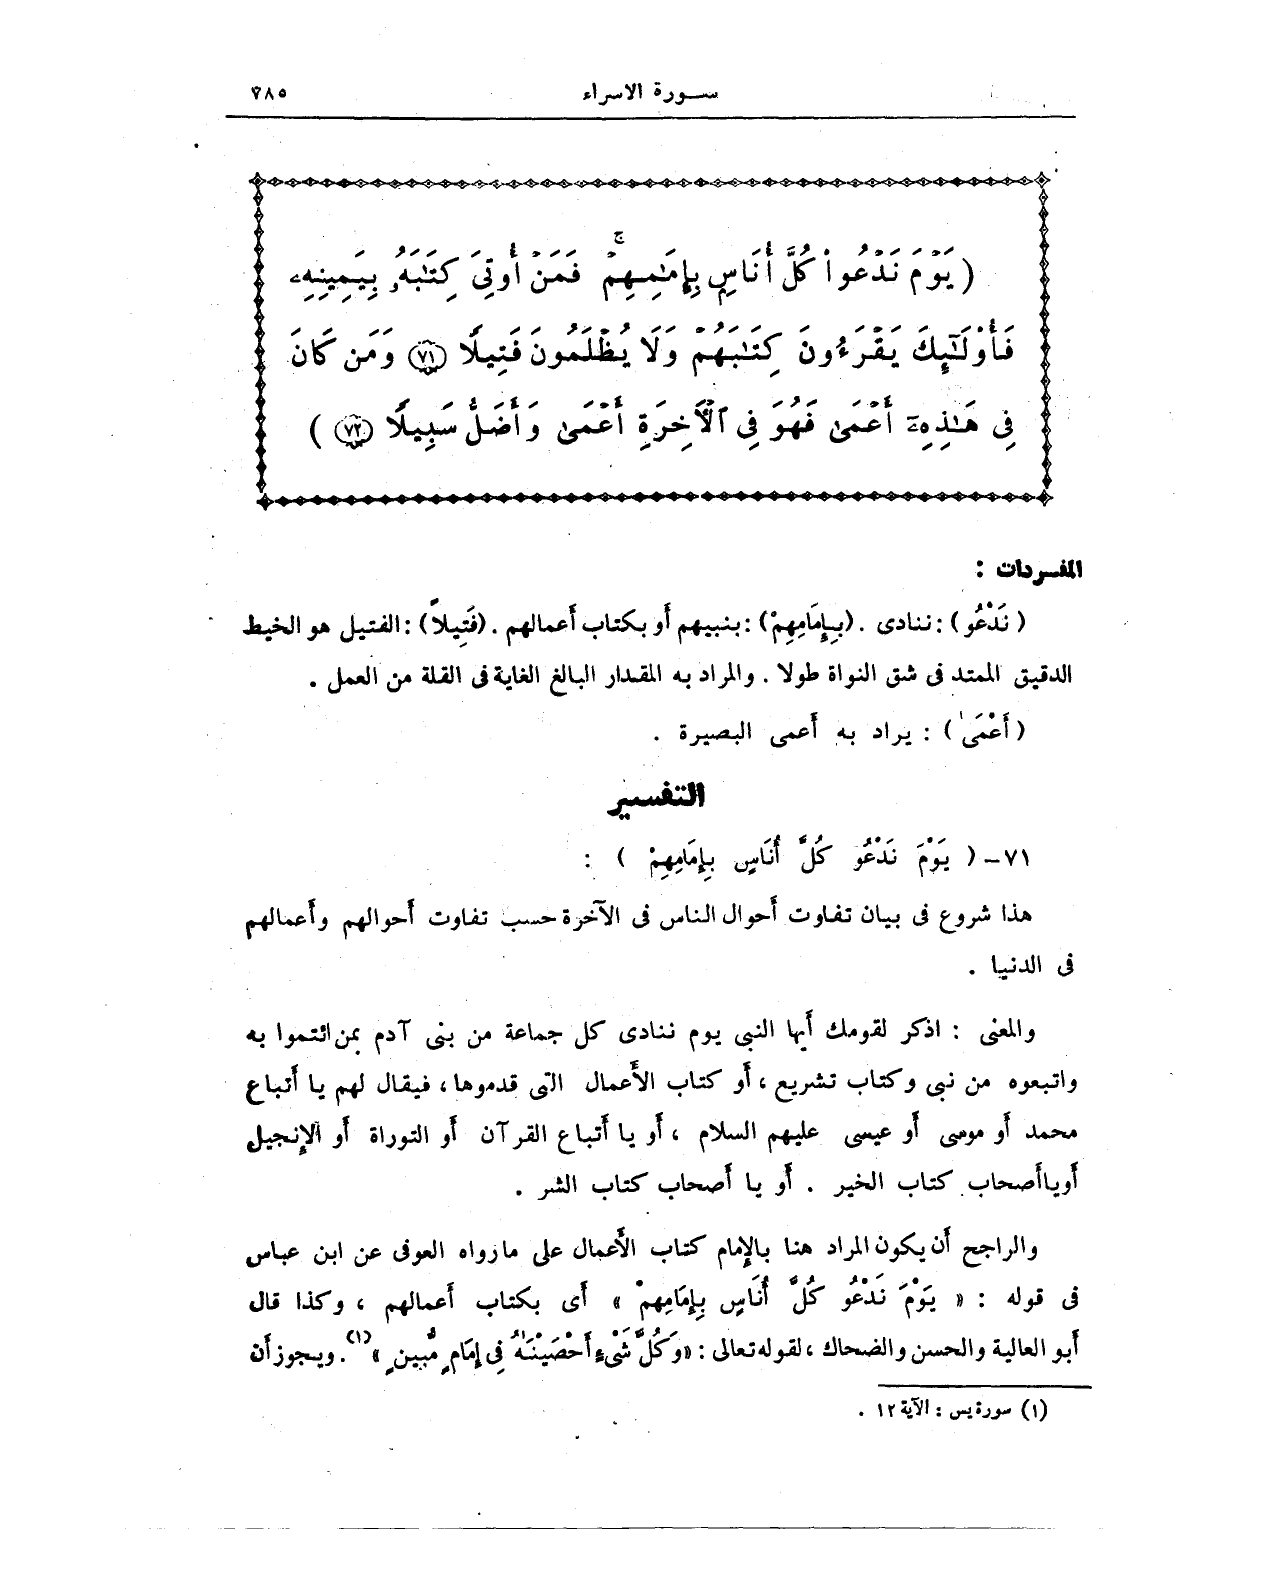 سورة الاسراء ٧٨٥
( يَوْمَ نَدْعُوا۟ كُلَّ أُنَاسٍ بِإِمَـٰمِهِمْ ۖ فَمَنْ أُوتِىَ كِتَـٰبَهُۥ بِيَمِينِهِۦ
فَأُو۟لَـٰٓئِكَ يَقْرَءُونَ كِتَـٰبَهُمْ وَلَا يُظْلَمُونَ فَتِيلًا ٧١ وَمَن كَانَ
فِى هَـٰذِهِۦٓ أَعْمَىٰ فَهُوَ فِى ٱلْـَٔاخِرَةِ أَعْمَىٰ وَأَضَلُّ سَبِيلًا ٧٢ )
المفسردات :
( نَدْعُو ) : ننادى . ( بِإِمَامِهِمْ ) : بنبيهم أو بكتاب أعمالهم . ( فَتِيلاً ) : الفتيل هو الخيط
الدقيق الممتد فى شق النواة طولا . والمراد به المقدار البالغ الغاية فى القلة من العمل .
( أَعْمَىٰ ) : يراد به أعمى البصيرة .
التفسير
٧١ – ( يَوْمَ نَدْعُو كُلَّ أُنَاسٍ بِإِمَامِهِمْ ) :
هذا شروع فى بيان تفاوت أحوال الناس فى الآخرة حسب تفاوت أحوالهم وأعمالهم
فى الدنيا .
والمعنى : اذكر لقومك أيها النبى يوم ننادى كل جماعة من بنى آدم بمن ائتموا به
واتبعوه من نبى وكتاب تشريع ، أو كتاب الأعمال التى قدموها ، فيقال لهم يا أتباع
محمد أو موسى أو عيسى عليهم السلام ، أو يا أتباع القرآن أو التوراة أو الإنجيل
أو يا أصحاب كتاب الخير . أو يا أصحاب كتاب الشر .
والراجح أن يكون المراد هنا بالإمام كتاب الأعمال على ما رواه العوفى عن ابن عباس
فى قوله : « يَوْمَ نَدْعُو كُلَّ أُنَاسٍ بِإِمَامِهِمْ » أى بكتاب أعمالهم ، وكذا قال
أبو العالية والحسن والضحاك ، لقوله تعالى : « وَكُلَّ شَىْءٍ أَحْصَيْنَـٰهُ فِى إِمَامٍ مُّبِينٍ » (١) . ويجوز أن
(١) سورة يس : الآية ١٢ .